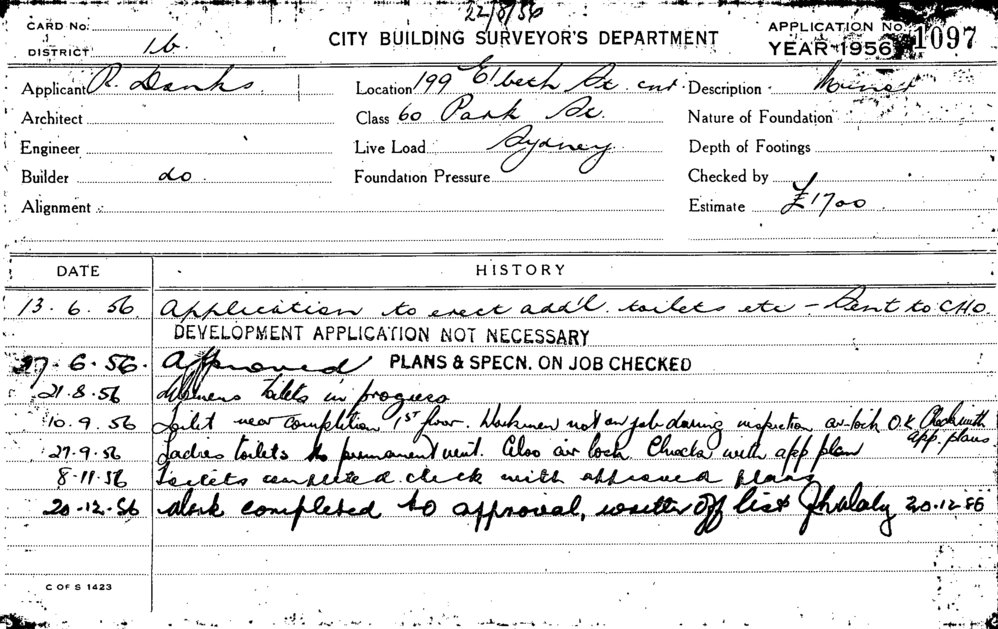 22/8/56
CARD No.
DISTRICT 1b
CITY BUILDING SURVEYOR'S DEPARTMENT
APPLICATION No. 1097
YEAR 1956
Applicant R. Danks
Location 199 El'beth St. cnr.
Description Minor
Architect
Class 60 Park St.
Nature of Foundation
Engineer
Live Load Sydney
Depth of Footings
Builder do
Foundation Pressure
Checked by
Alignment
Estimate £1700
DATE HISTORY
13.6.56 Application to erect add'l. toilets etc - Sent to CHO.
DEVELOPMENT APPLICATION NOT NECESSARY
27.6.56. Approved PLANS & SPECN. ON JOB CHECKED
21.8.56 Womens toilets in progress
10.9.56 Toilet near completion 1ST floor. Workmen not on job during inspection air-lock O.K Check with
app. plans
27.9.56 Ladies toilets to permanent vent. Also air lock. Check with app plan
8-11.56 Toilets completed. check with approved plans
20.12.56 Work completed to approval, written off list 20.12.56
C OF S 1423